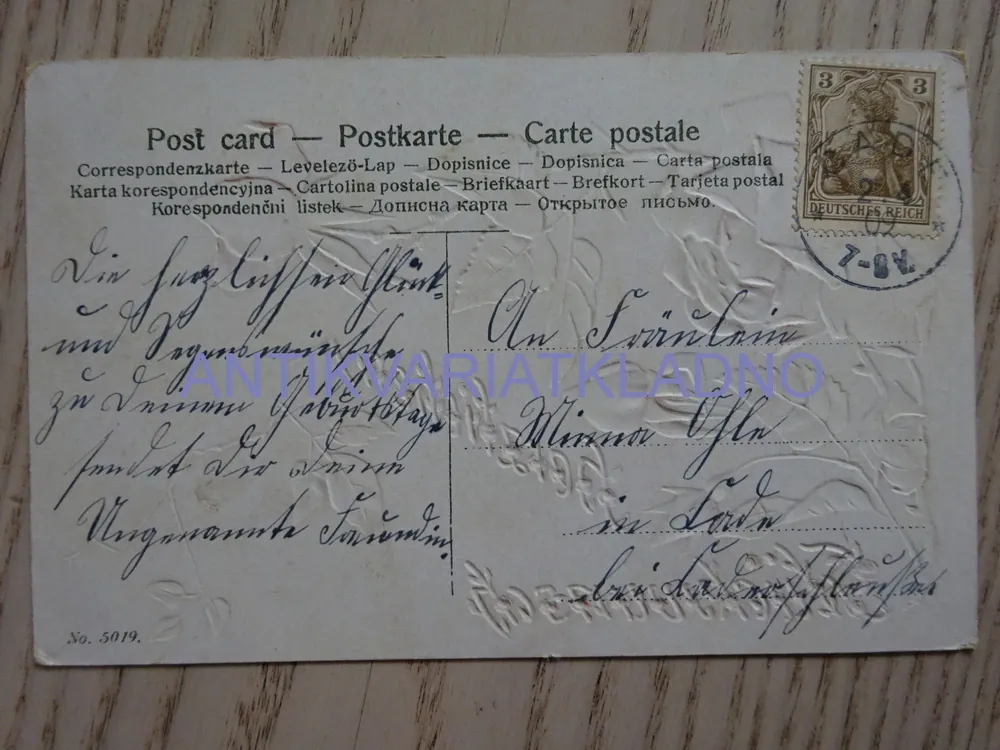 Post card — Postkarte — Carte postale
Correspondenzkarte — Levelező-Lap — Dopisnice — Dopisnica — Carta postala
Karta korespondencyjna — Cartolina postale — Briefkaart — Brefkort — Tarjeta postal
Korespondenčni listek — Дописна карта — Открытое письмо.
3 3
DEUTSCHES REICH
7-8 V.
Die herzlichsten Glück-
und Segenswünsche
zu Deinem Geburtstage
sendet Dir Deine
Ungenannte Freundin.
An Fräulein
Minna Ohle
in Lade
bei
ANTIKVARIATKLADNO
No. 5019.